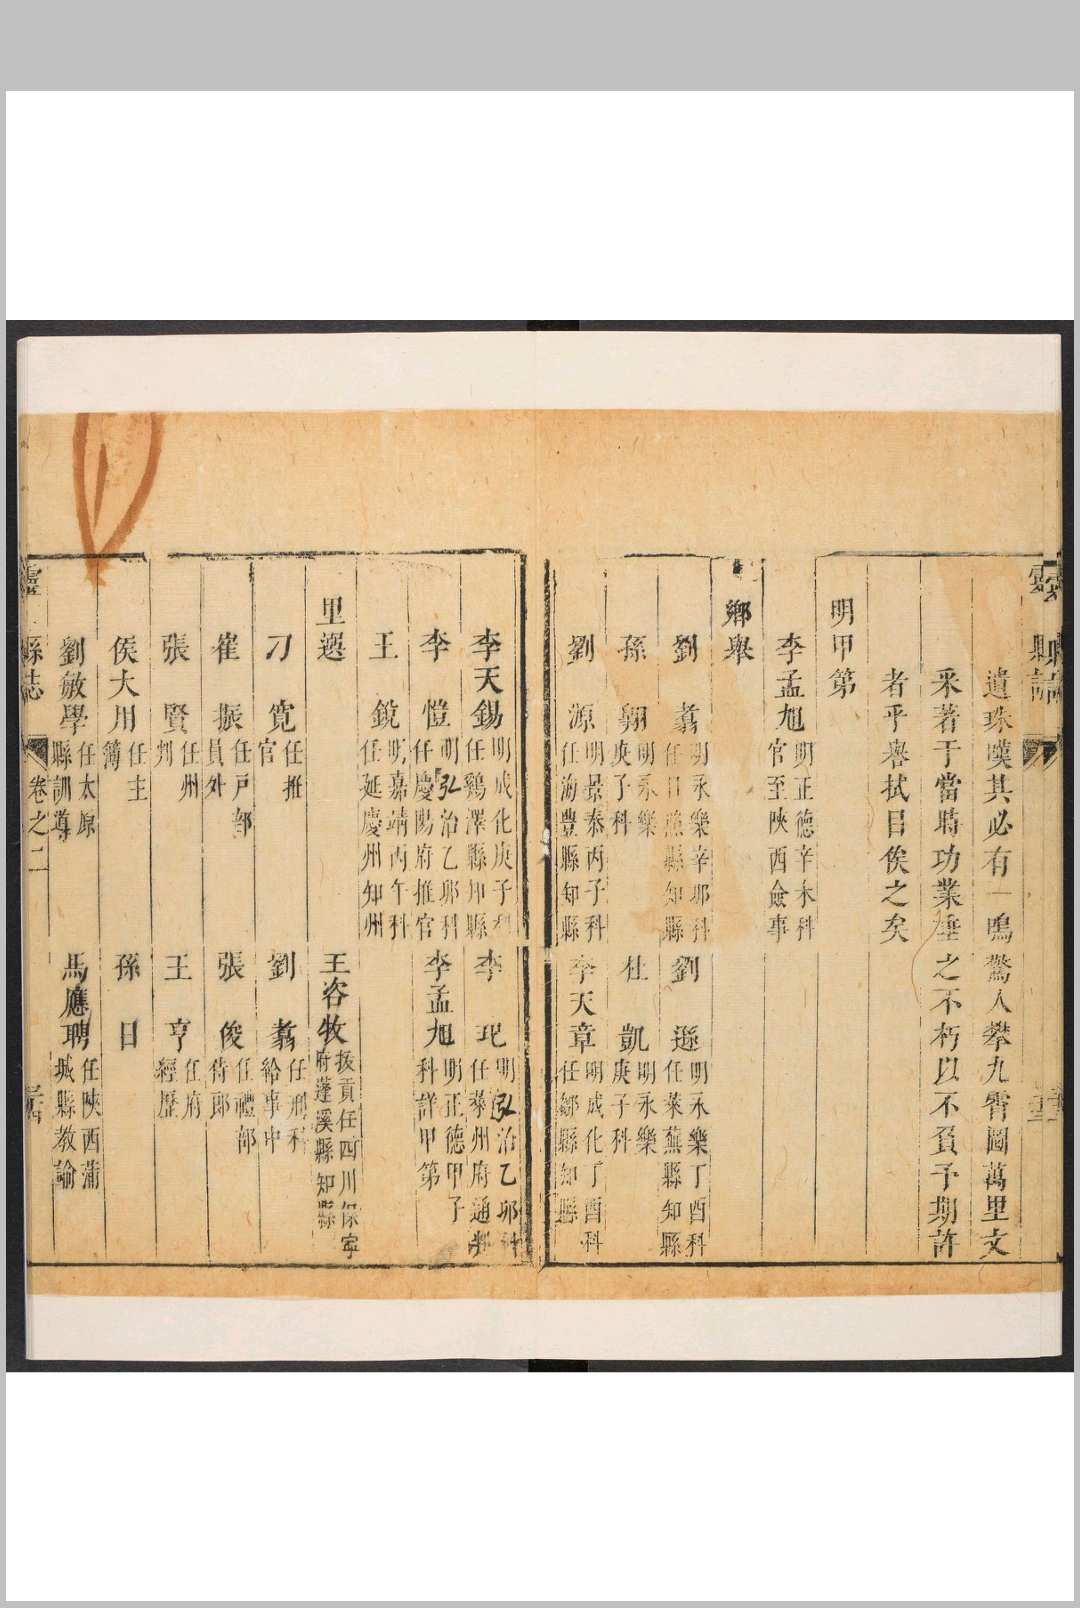 遺珠嘆其必有一鳴驚人攀九霄圖萬里文
采著于當時功業垂之不朽以不負予期許
者乎舉拭目俟之矣
明甲第
李孟旭 明正德辛未科官至陝西僉事
鄉舉
劉翥 明永樂辛卯科任日 縣知縣 劉遜 明永樂丁酉科任萊蕪縣知縣
孫翱 明永樂庚子科 杜凱 明永樂庚子科
劉源 明景泰丙子科任海豐縣知縣 李天章 明成化丁酉科任鄒縣知縣
李天錫 明成化庚子科任鷄澤縣知縣 李玘 明弘治乙卯科任萊州府通判
李愷 明弘治乙卯科任慶陽府推官 李孟旭 明正德甲子科詳甲第
王鏡 明嘉靖丙午科任延慶州知州
里選
王容牧 拔貢任四川保寧府蓬溪縣知縣
刁寬 任推官 劉翥 任刑科給事中
崔振 任戶部員外 張俊 任禮部侍郎
張賢 任州判 王亨 任府經歷
侯大用 任主簿 孫日
劉敏學 任太原縣訓導 馬應聘 任陝西蒲城縣教諭
縣誌 卷之二